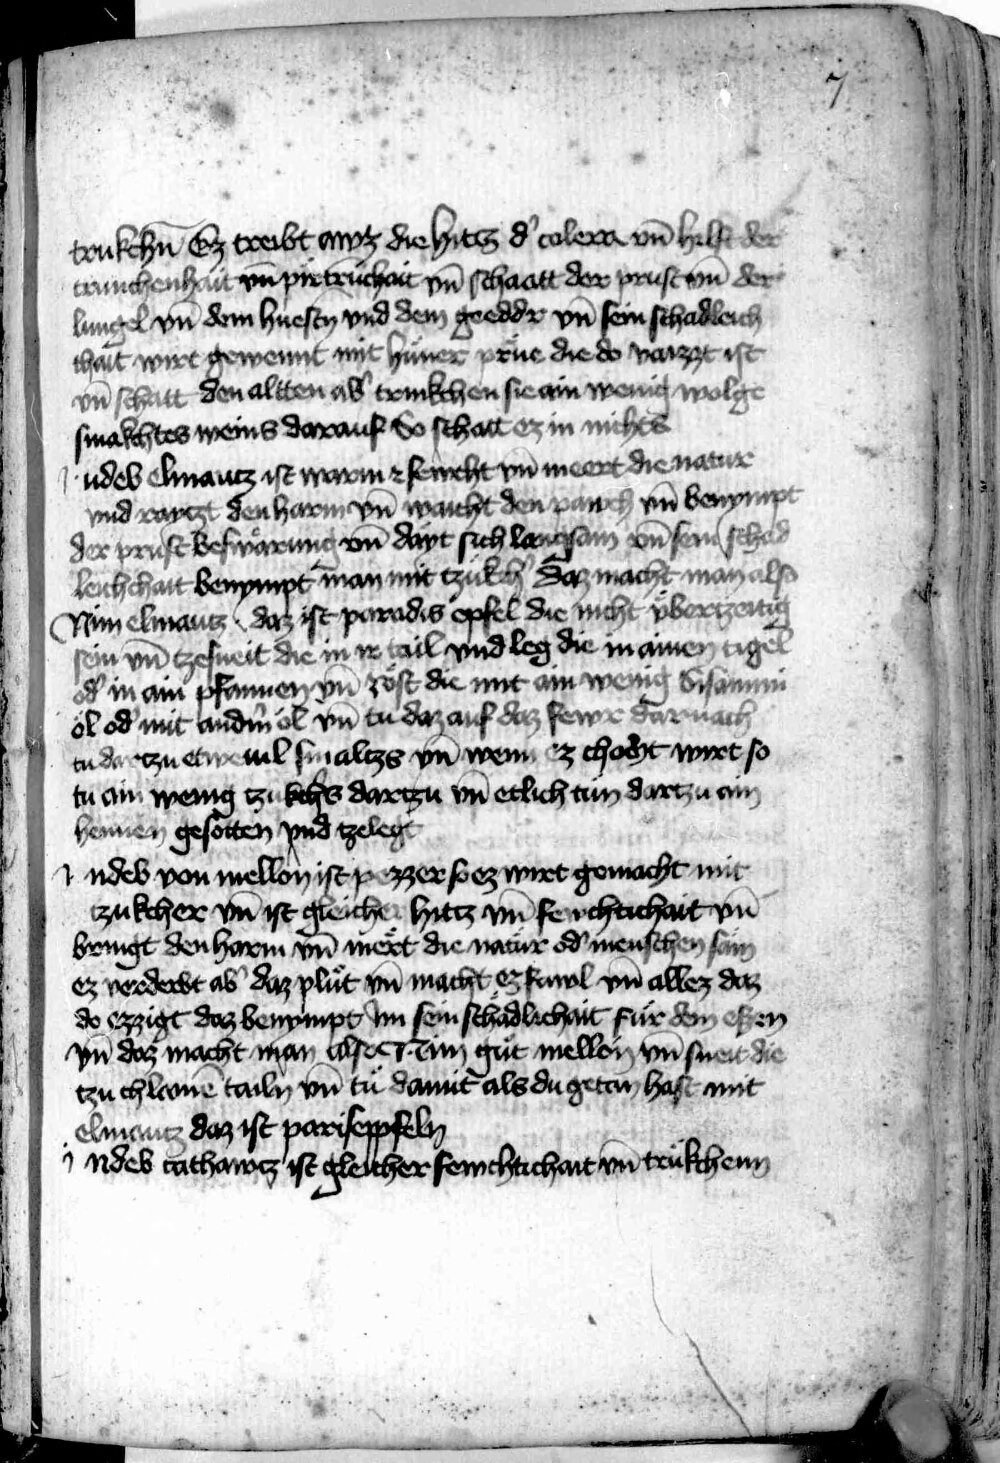 7
trukchn̄ Ez treibt awz die hitcz d' colera vn̄ hilft der
trunchenhait vn̄ pirtruchait vn̄ schaatt der prust vn̄ der
lungel vn̄ dem huestn̄ vnd dem geedër vn̄ sein schadleich
chait wirt gewennt mit hüner prüe die do vaizzt ist
vn̄ schatt den altten ab' trinkchen sie ain wenig wolge
smakchtes weins darauf So schatt ez in nichts
j udeb elmautz ist warm z fewcht vn̄ meert die natur
vnd raytzt den harm vn̄ waicht den pawch vn̄ benympt
der prust beswärung vn̄ däyt sich langsam vn̄ sein schad
leichchait benympt man mit tzukch' Daz macht man also
Nim elmautz daz ist paradis epfel die nicht vberczeitig
sein vn̄ tzesneit die in iv tail vnd leg die in ainen tigel
od' in ain pfannen vn̄ röst die mit ain wenig Sisamini
öl od' mit andm̄ öl vn̄ tu daz auf daz fewr darnach
tu dartzu etwevil smaltzs vn̄ wenn ez chocht wirt so
tu ain wenig tzukch's dartzu vn̄ etlich tün dartzu ain
hennen gesotten vnd tzelegt
j ndeb von mellon ist pezzer so ez wirt gemacht mit
tzukcher vn̄ ist gleicher hitcz vn̄ fewchtichait vn̄
bringt den harm vn̄ mert die natur od' menschen sam
ez verderbt ab' daz plüt vn̄ macht ez fawl vn̄ allez daz
do ezzigt daz benympt Im sein schädlichait für dem eßen
vn̄ daz macht man also Nim güt mellon vn̄ sneit die
tzu chlainē tailn vn̄ tü damit als du getan hast mit
elmautz daz ist parisepfeln
j ndeb cathawcz ist gleicher fewchtichait vn̄ trükchenn